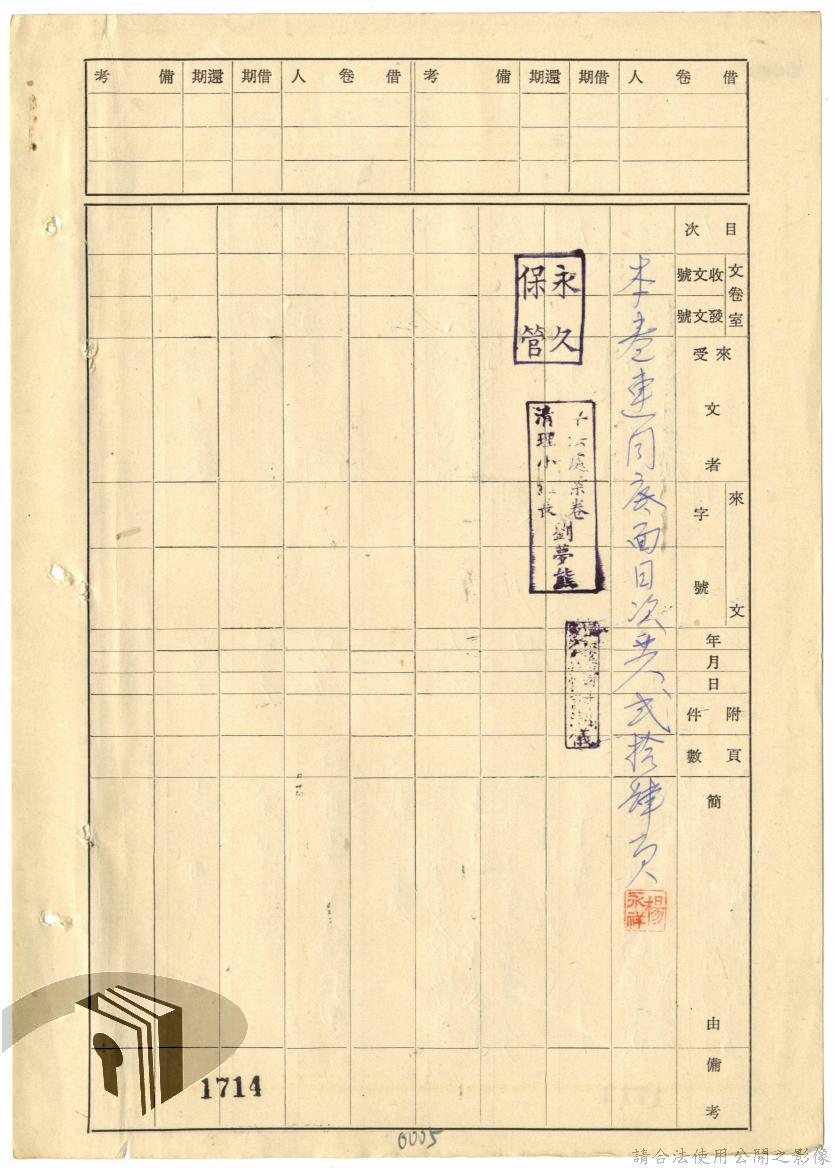 借卷人 借期 還期 備考 借卷人 借期 還期 備考
目次
文卷室
收文號
發文號
來受文者
來文
字號
年月日
附件
頁數
簡由
備考
本卷連同底面目次共貳拾肆頁
楊永祥
永久保管
處案卷
清理小組長
劉夢熊
儀
1714
0005
請合法使用公開之影像